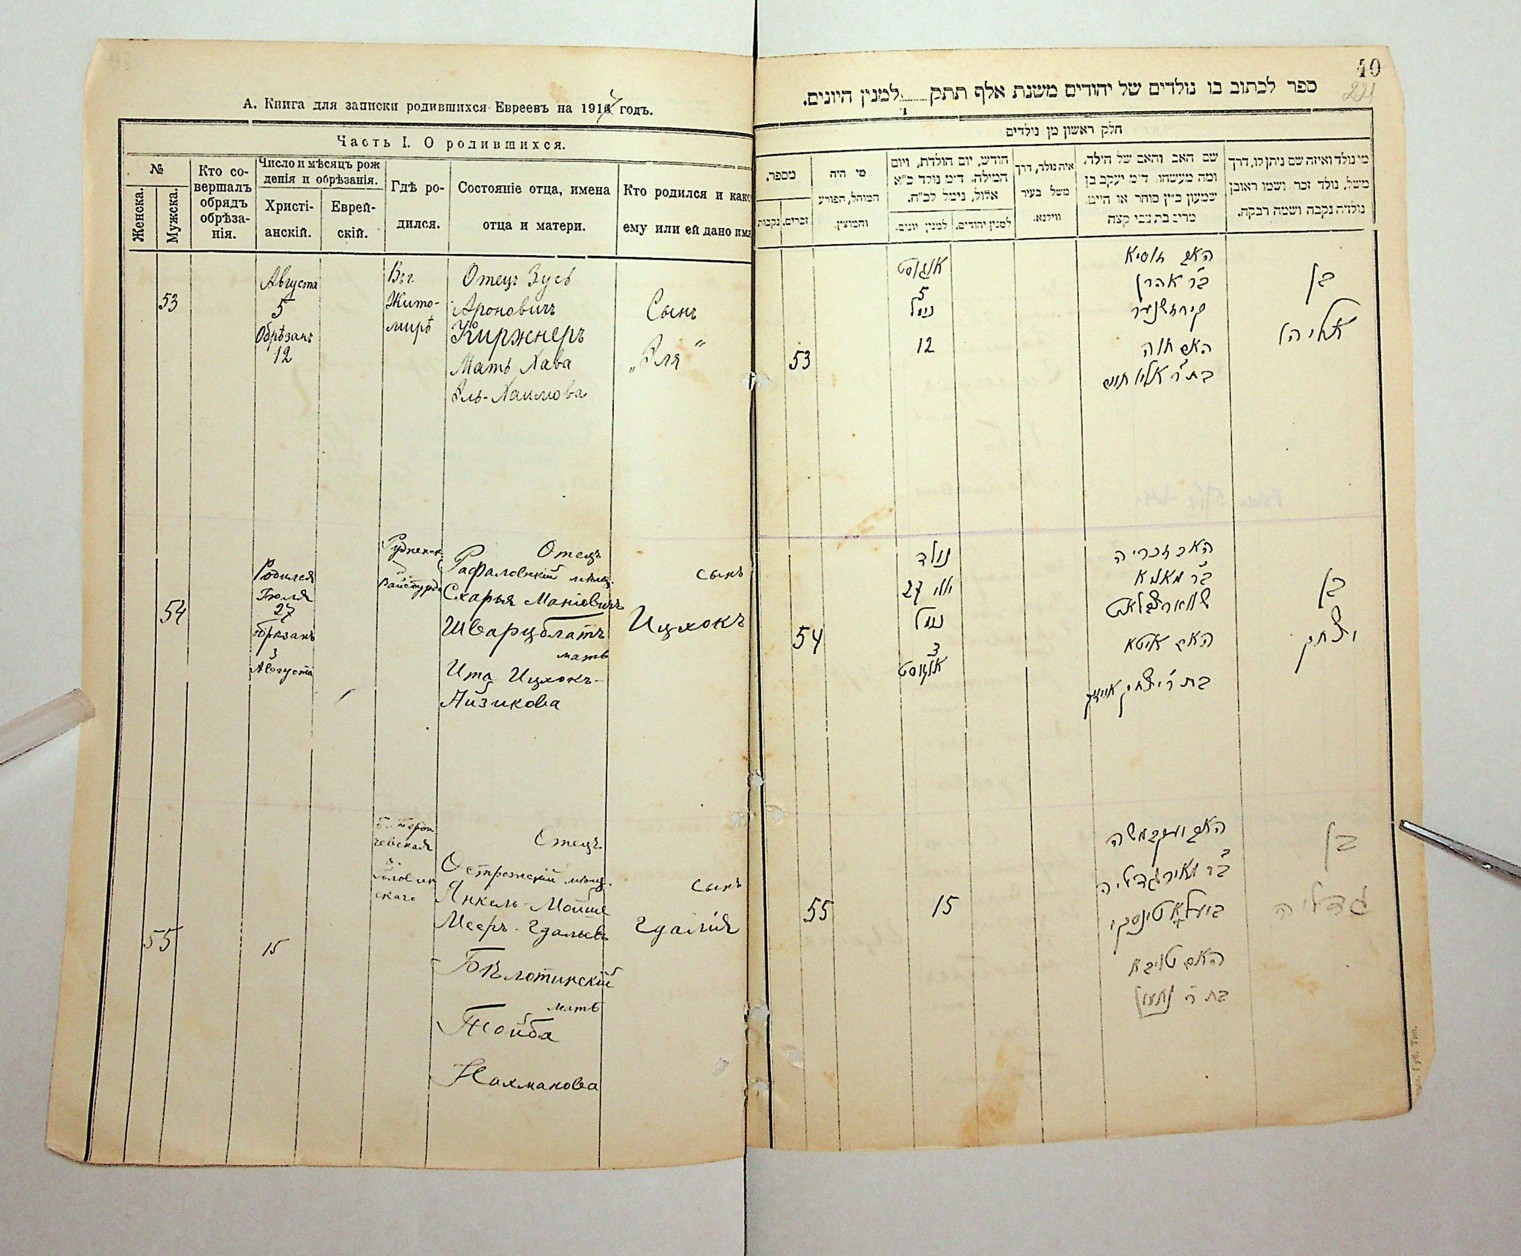 А. Книга для записки родившихся Евреевъ на 1917 годъ.
Часть I. О родившихся.
№
Женска.
Мужска.
Кто со-
вершалъ
обрядъ
обрѣза-
нія.
Число и мѣсяцъ рож
денія и обрѣзанія.
Христі-
анскій.
Еврей-
скій.
Гдѣ ро-
дился.
Состояніе отца, имена
отца и матери.
Кто родился и како
ему или ей дано имя
53
Августа
5
Обрѣзанъ
12
Вг.
Жито-
мирѣ
Отецъ Зусь
Ароновичъ
Киржнеръ
Мать Хава
Эль-Хаимова
Сынъ
„Эля“
54
Родился
Іюля
27
Обрѣзанъ
3
Августа
Отецъ
Рафаловскій мѣщ.
Схарья Маніевичъ
Шварцблатъ
мать
Ита Ицхокъ-
Айзикова
сынъ
Ицхокъ
55
15
Отецъ
Острожскій мѣщ.
Янкель-Мойше
Мееръ-Гдальевъ
Бѣлотинскій
мать
Тойба
Нахманова
сынъ
Гдалія
40
221
ספר לכתוב בו נולדים של יהודים משנת אלף תתק למנין היונים.
חלק ראשון מן נולדים
מספר,
נקבות
זכרים.
מי היה
המוהל, הפורע
והמוצץ.
חודש, יום הולדת, ויום
המילה. ד״מ נולד כ״א
אלול, נימל לכ״ח.
למנין יונים.
למנין יהודים.
איה נולד, דרך
משל בעיר
ווילנא.
שם האב והאם של הילד.
ומה מעשהו. ד״מ יעקב בן
שמעון כ״ץ סוחר או חייט.
מרים בת צבי קצת
מי נולד ואיזה שם ניתן לו, דרך
משל, נולד זכר ושמו ראובן
נולדה נקבה ושמה רבקה.
53
אוגוסט
5
נימל
12
האב זוסיא
בר אהרן
קירזשנער
האם חוה
בת ר אליו חיים
בן
אליהו
54
נולד
יולי 27
נימל
3
אוגוסט
האב זכריה
בר מאניא
שווארצבלאט
האם איטא
בת ר יצחק אייזיק
בן
יצחק
55
15
האב יעקב משה
בר מאיר גדליה
ביעלאטינסקי
האם טויבא
בת ר נחמן
בן
גדליה